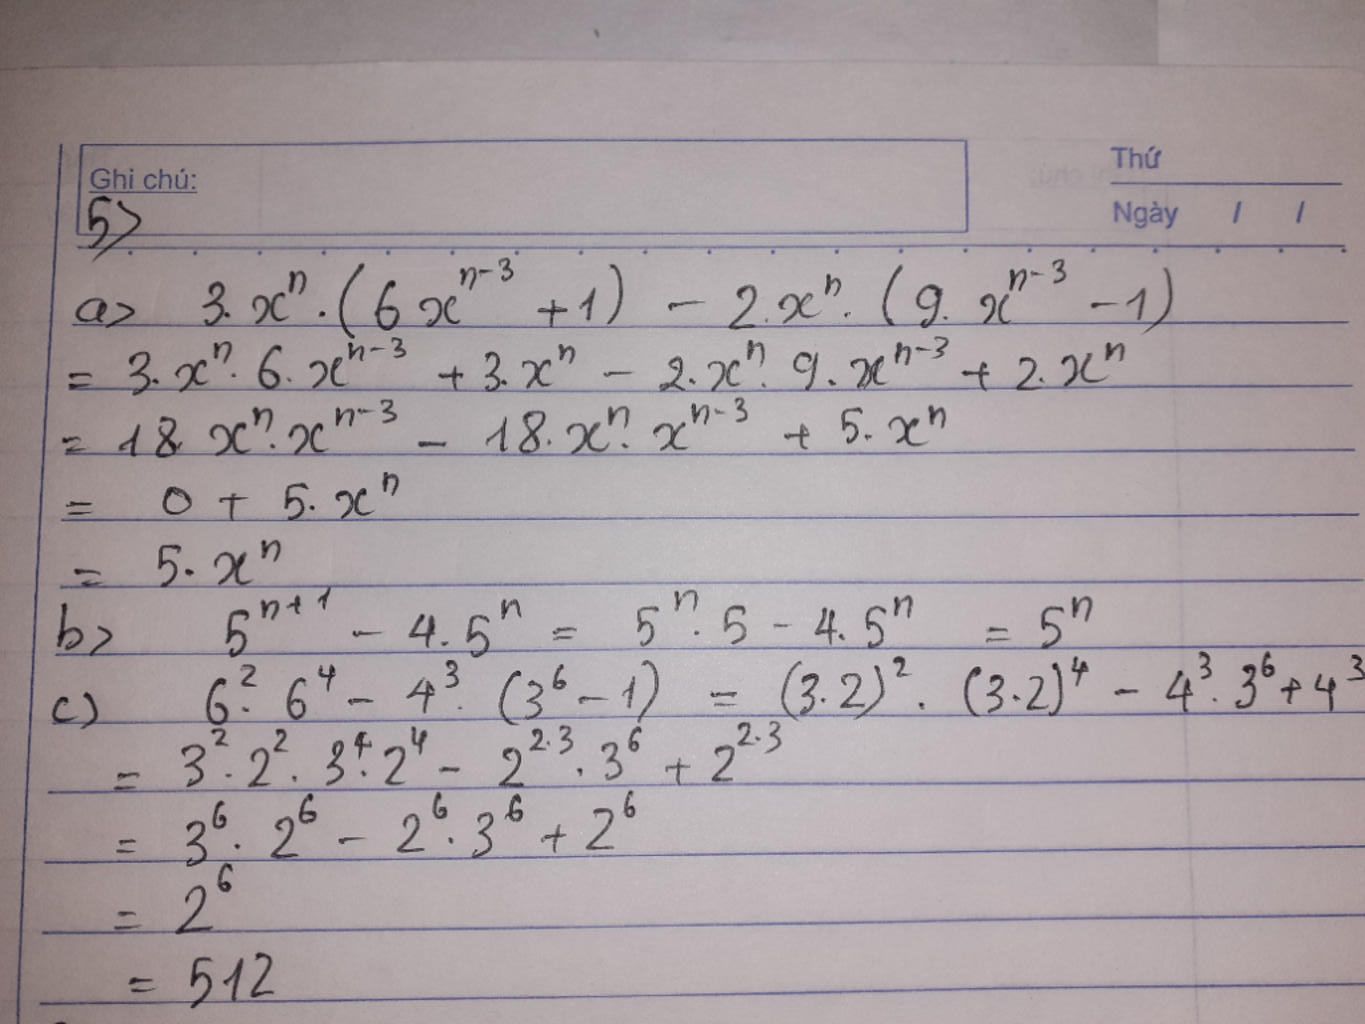 Ghi chú:
Thứ
Ngày / /
5>
a> 3.xⁿ.(6xⁿ⁻³ + 1) - 2.xⁿ.(9.xⁿ⁻³ - 1)
= 3.xⁿ.6.xⁿ⁻³ + 3.xⁿ - 2.xⁿ.9.xⁿ⁻³ + 2.xⁿ
= 18.xⁿ.xⁿ⁻³ - 18.xⁿ.xⁿ⁻³ + 5.xⁿ
= 0 + 5.xⁿ
= 5.xⁿ
b> 5ⁿ⁺¹ - 4.5ⁿ = 5ⁿ.5 - 4.5ⁿ = 5ⁿ
c) 6².6⁴ - 4³.(3⁶ - 1) = (3.2)².(3.2)⁴ - 4³.3⁶ + 4³
= 3².2².3⁴.2⁴ - 2^2.3.3⁶ + 2^2.3
= 3⁶.2⁶ - 2⁶.3⁶ + 2⁶
= 2⁶
= 512